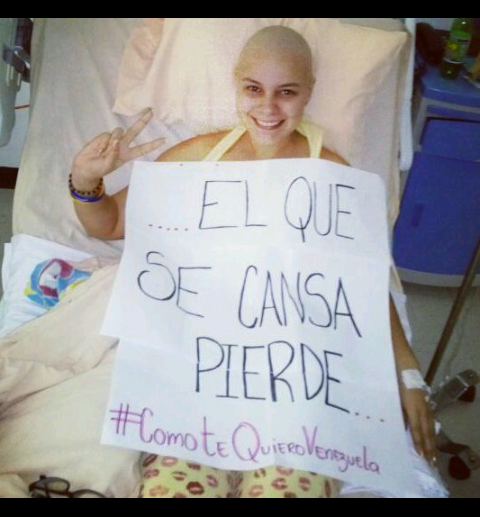 .....EL QUE
SE CANSA
PIERDE....
#ComoteQuieroVenezuela